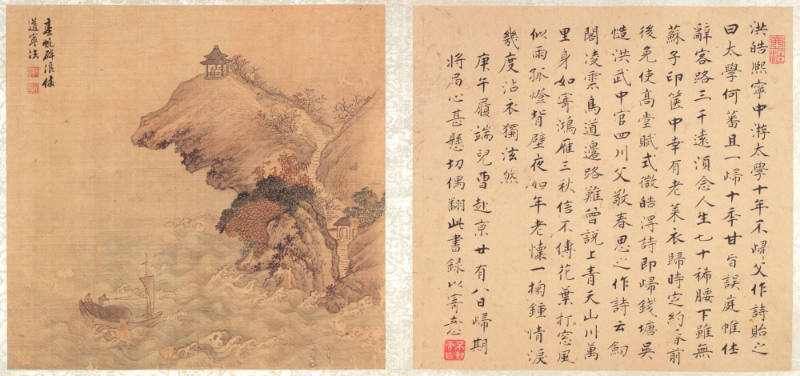 洪皓熙寧中游太學十年不歸父作詩貽之
曰太學何蕃且一歸十季甘旨誤庭帷仕
辭客路三千遠須念人生七十稀腰下雖無
蘇子印篋中幸有老萊衣歸時定約春前
後免使高堂賦式微皓得詩即歸錢塘吳
愷洪武中官四川父敬春思之作詩云劍
閣凌雲鳥道邊路難曾說上青天山川萬
里身如寄鴻雁三秋信不傳花葉打窗風
似雨孤燈背壁夜如年老懷一掬鍾情淚
幾度沾衣獨泫然
庚午履端兒曹赴京廿有八日歸期
將屆心甚懸切偶翻此書錄以寄
春帆 浪
道寧法